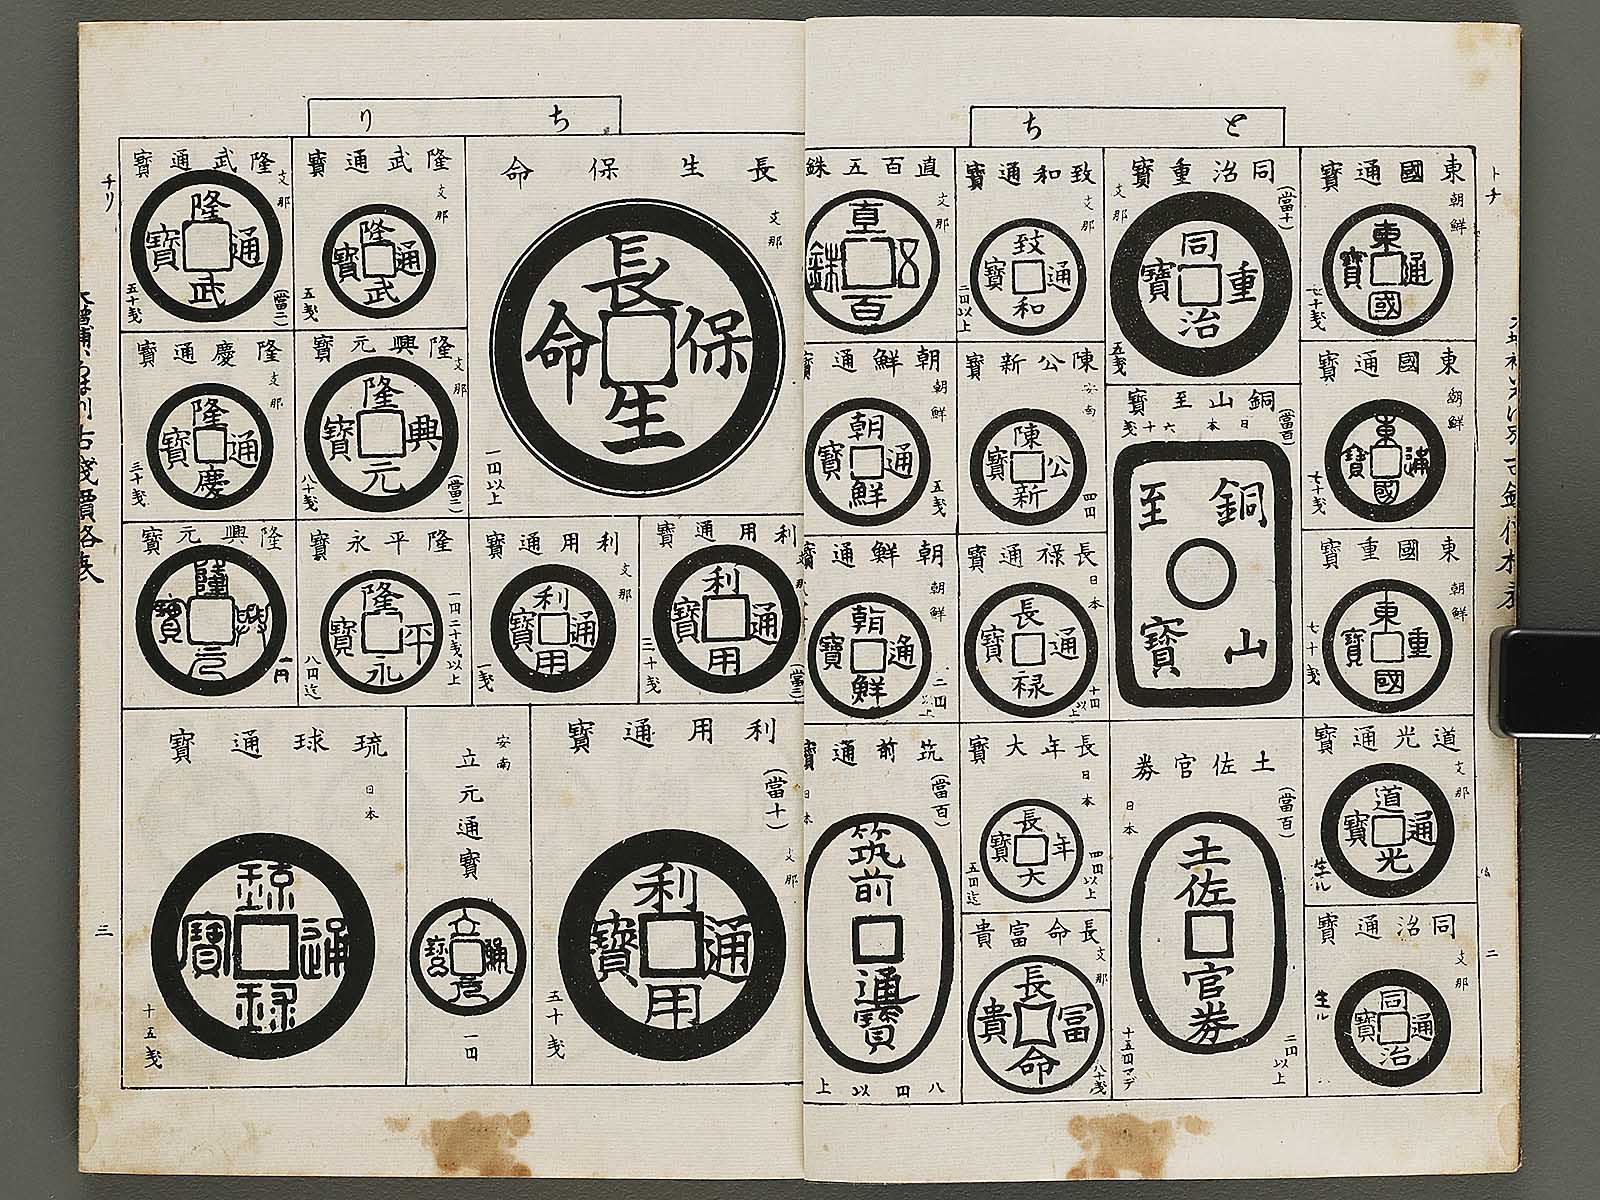 と ち
東國通寶
朝鮮
東國通寶
七十戔
東國通寶
朝鮮
東國通寶
七十戔
東國重寶
朝鮮
東國重寶
七十戔
道光通寶
支那
道光通寶
同治通寶
支那
同治通寶
同治重寶
(當十)
支那
同治重寶
五戔
銅山至寶
(當百)
日本
六十戔
銅山至寶
土佐官券
(當百)
日本
土佐官券
二円以上
十五円マデ
致和通寶
支那
致和通寶
二円以上
陳公新寶
安南
陳公新寶
四円
長禄通寶
日本
長禄通寶
十円以上
長年大寶
日本
長年大寶
四円以上
五円迄
長命富貴
支那
長命富貴
八十戔
直百五銖
支那
直百五銖
朝鮮通寶
朝鮮
朝鮮通寶
五戔
朝鮮通寶
朝鮮
朝鮮通寶
二円以上
筑前通寶
(當百)
日本
筑前通寶
八円以上
トチ
二
ち り
長生保命
支那
長生保命
一円以上
隆武通寶
支那
隆武通寶
五戔
隆武通寶
支那
(當二)
隆武通寶
五十戔
隆興元寶
支那
(當二)
隆興元寶
八十戔
隆慶通寶
支那
隆慶通寶
三十戔
利用通寶
支那
(當二)
利用通寶
二十戔
利用通寶
支那
利用通寶
一戔
隆平永寶
隆平永寶
一円二十戔以上
八円迄
隆興元寶
隆興元寶
一円
利用通寶
(當十)
支那
利用通寶
五十戔
立元通寶
安南
立元通寶
一円
琉球通寶
日本
琉球通寶
十五戔
チリ
三